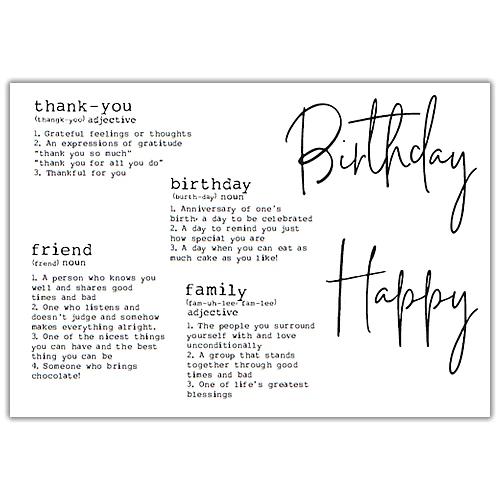 thank-you
(thangk-yoo) adjective
1. Grateful feelings or thoughts
2. An expressions of gratitude
"thank you so much"
"thank you for all you do"
3. Thankful for you
birthday
(burth-day) noun
1. Anniversary of one's
birth; a day to be celebrated
2. A day to remind you just
how special you are
3. A day when you can eat as
much cake as you like!
friend
(frend) noun
1. A person who knows you
well and shares good
times and bad
2. One who listens and
doesn't judge and somehow
makes everything alright.
3. One of the nicest things
you can have and the best
thing you can be
4. Someone who brings
chocolate!
family
(fam-uh-lee fam-lee)
adjective
1. The people you surround
yourself with and love
unconditionally
2. A group that stands
together through good
times and bad
3. One of life's greatest
blessings
Birthday
Happy